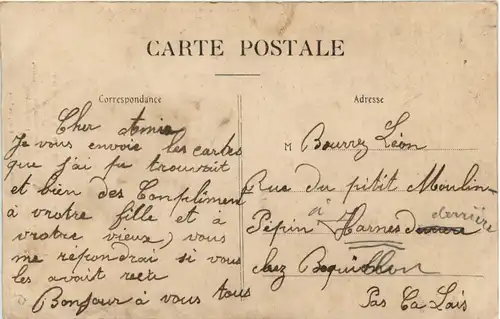 CARTE POSTALE
Correspondance
Cher Amie
Je vous envoie les cartes
que j'ai pu trouvait
et bien des Compliment
à vrotre fille et à
vrotre vieux) vous
me répondrai si vous
les avait recu
Bonjour à vous tous
Adresse
M Bourrez Léon
Rue du pitit Moulin
Pépin à Harnes derrière
chez
Pas Ca Lais